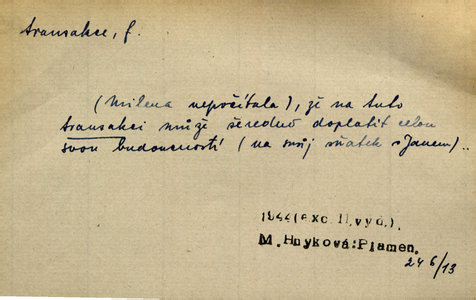 transakce, f.
(Milena nepočítala), že na tuto
transakci může šeredně doplatit celou
svou budoucností (na svůj sňatek s Janem)..
1944(exc. II.vyd.).
M. Hnyková:Plamen.
246/13